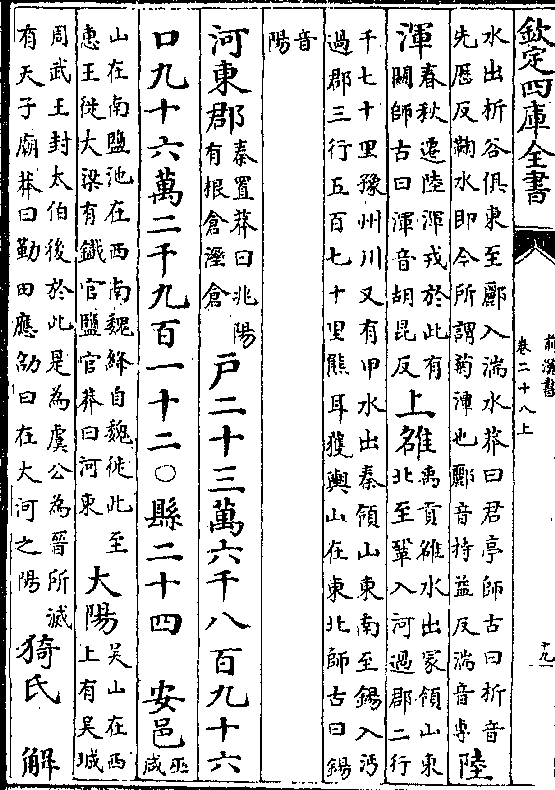 欽定四庫全書
前漢書
卷二十八上
十九
水出析谷俱東至酈入湍水莽曰君亭師古曰析音
先歷反鞠水即今所謂菊潭也酈音持益反湍音專
陸
渾
春秋遷陸渾戎於此有
闗師古曰渾音胡昆反
上雒
禹貢雒水出冢領山東
北至鞏入河過郡二行
千七十里豫州川又有甲水出秦領山東南至錫入沔
過郡三行五百七十里熊耳獲輿山在東北師古曰錫
音
陽
河東郡
秦置莽曰兆陽
有根倉溼倉
户二十三萬六千八百九十六
口九十六萬二千九百一十二○縣二十四 安邑
巫
咸
山在南鹽池在西南魏絳自魏徙此至
惠王徙大梁有鐵官鹽官莽曰河東
大陽
吴山在西
上有吴城
周武王封太伯後於此是為虞公為晉所滅
有天子廟莽曰勤田應劭曰在大河之陽
猗氏 解